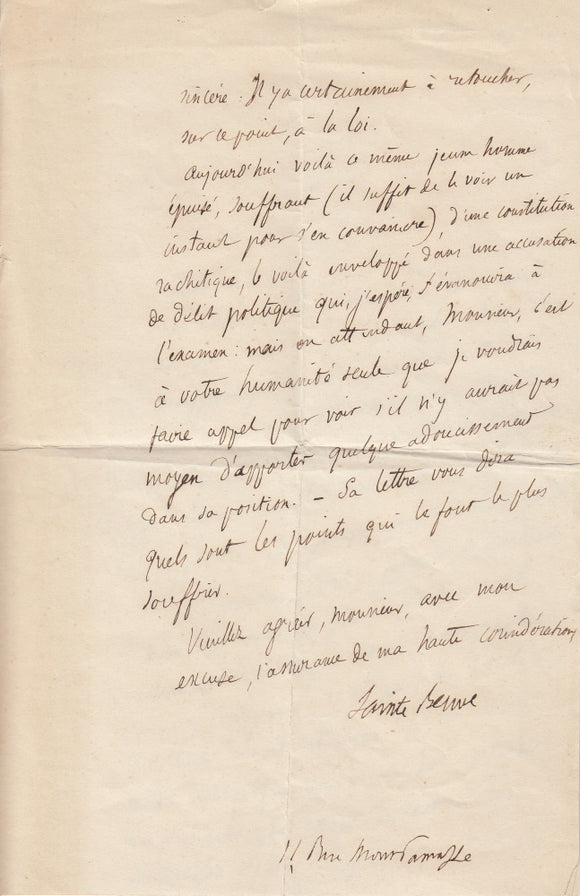 sincère. Il y a certainement à retoucher,
sur ce point, à la loi.
Aujourd'hui voilà ce même jeune homme
épuisé, souffrant (il suffit de le voir un
instant pour s'en convaincre), d'une constitution
rachitique, le voilà enveloppé dans une accusation
de délit politique qui, j'espère, s'évanouira à
l'examen : mais en attendant, Monsieur, c'est
à votre humanité seule que je voudrais
faire appel pour voir s'il n'y aurait pas
moyen d'apporter quelque adoucissement
dans sa position. – Sa lettre vous dira
quels sont les points qui le font le plus
souffrir.
Veuillez agréer, monsieur, avec mon
excuse, l'assurance de ma haute considération,
Sainte Beuve
11 Rue Mont Parnasse